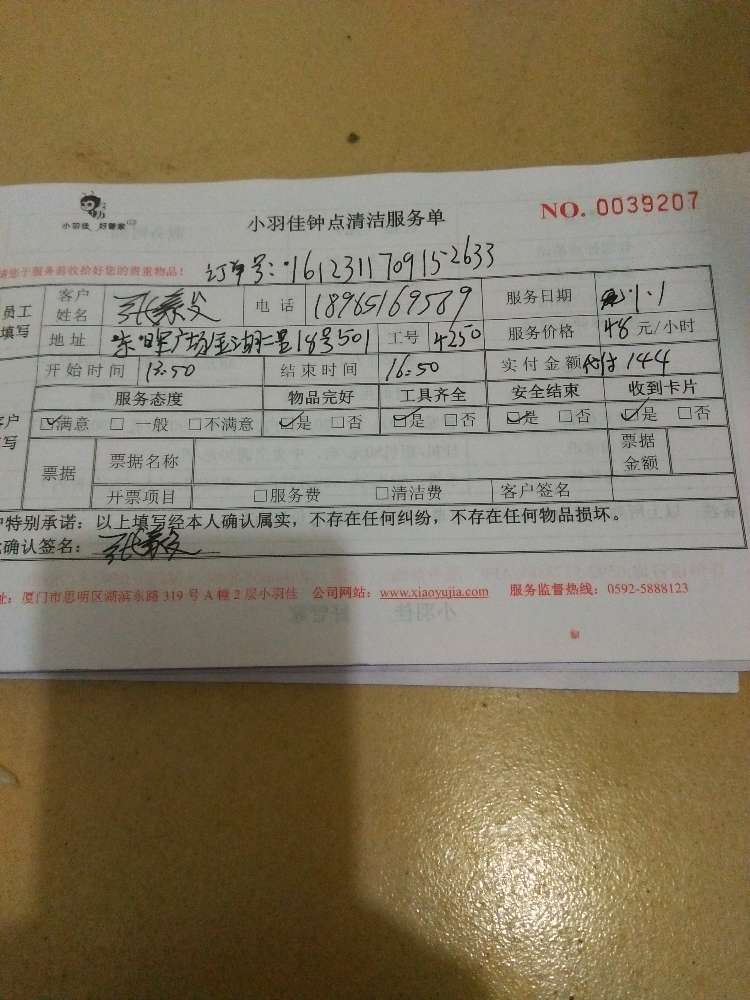 小羽佳 好管家
小羽佳钟点清洁服务单
NO. 0039207
请您于服务前收拾好您的贵重物品!
订单号:1612311709152633
员工填写
客户姓名 张 电话 18965169589 服务日期 1.1
地址 广场金湖二里18号501 工号 4250 服务价格 48元/小时
开始时间 13:50 结束时间 16:50 实付金额 代付144
服务态度 物品完好 工具齐全 安全结束 收到卡片
☑满意 □一般 □不满意 ☑是 □否 ☑是 □否 ☑是 □否 ☑是 □否
票据 票据名称 票据金额
开票项目 □服务费 □清洁费 客户签名
户特别承诺:以上填写经本人确认属实,不存在任何纠纷,不存在任何物品损坏。
确认签名:张
址:厦门市思明区湖滨东路319号A幢2层小羽佳 公司网站:www.xiaoyujia.com 服务监督热线:0592-5888123